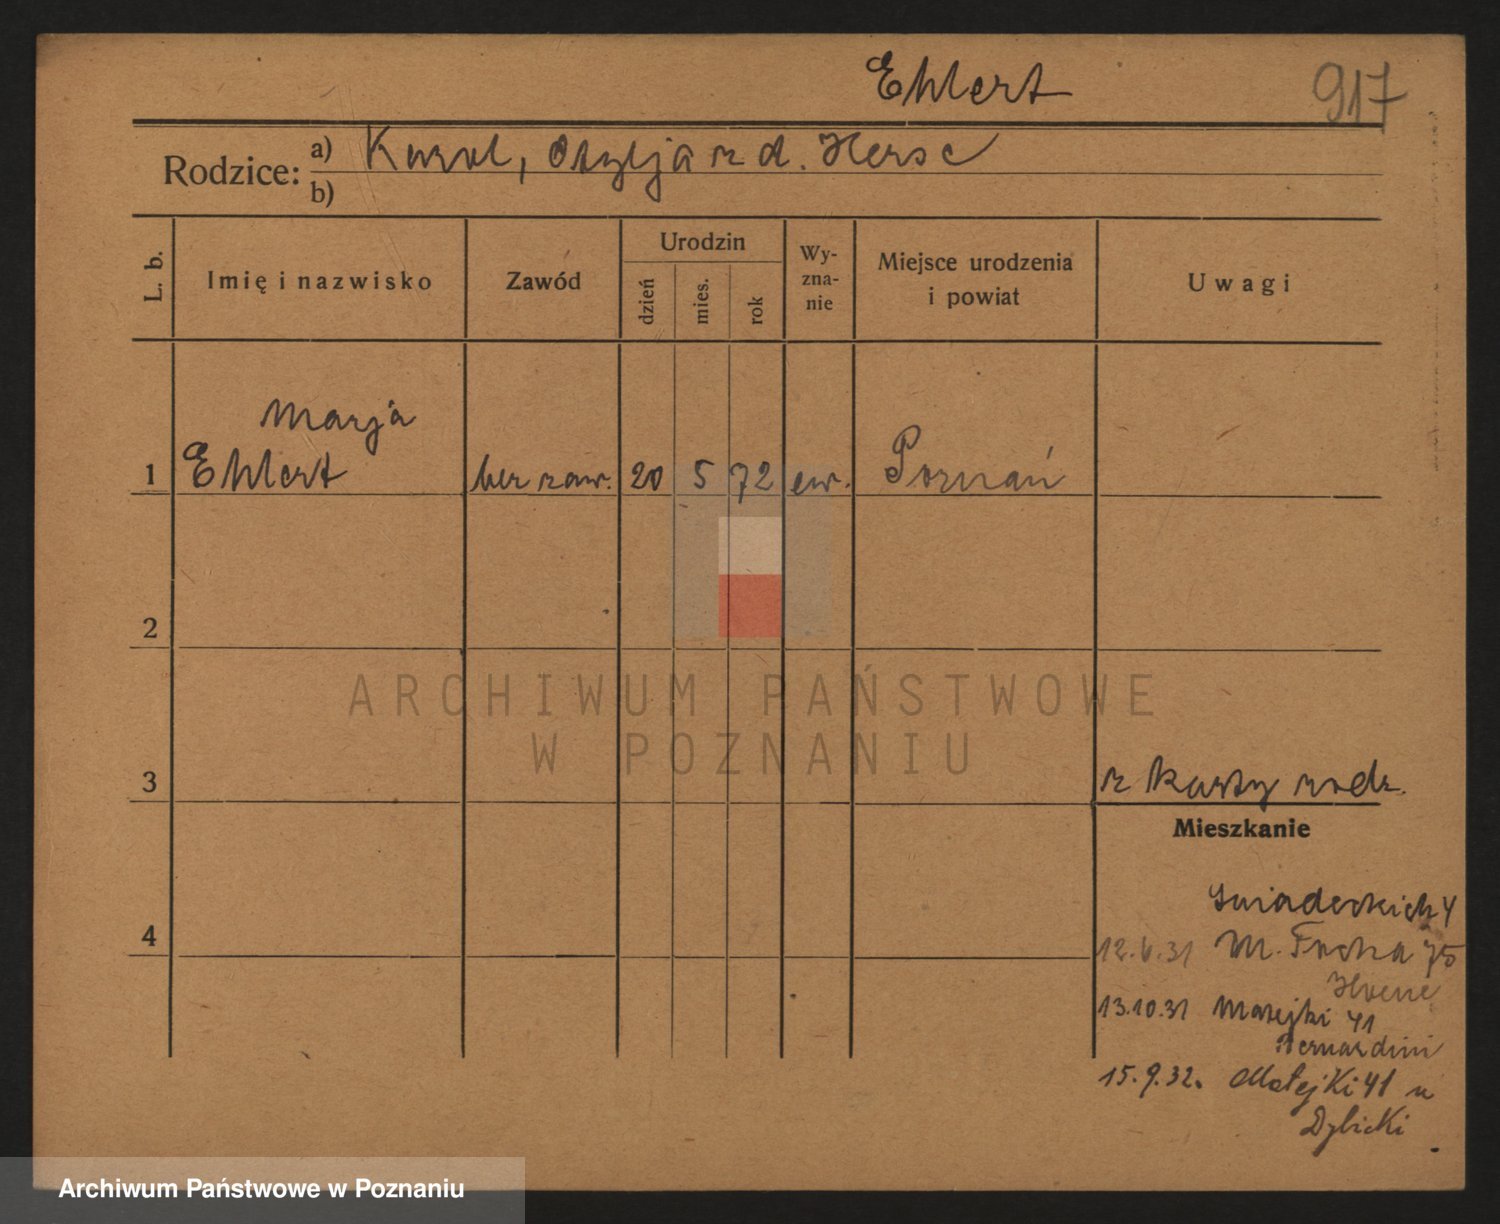 Ehlert
917
Rodzice: a) Karol, Otylja z d. Herse
b)
L. b.
Imię i nazwisko
Zawód
Urodzin
dzień
mies.
rok
Wy-
zna-
nie
Miejsce urodzenia
i powiat
Uwagi
Marja
1 Ehlert bez zaw. 20 5 72 ew. Poznań
2
ARCHIWUM PAŃSTWOWE
W POZNANIU
3
z karty rodz.
Mieszkanie
4
Śniadeckich 4
31 M. Focha 75
13.10.31 Matejki 41
Bernardini
15.9.32. Matejki 41 u
Dybicki
Archiwum Państwowe w Poznaniu